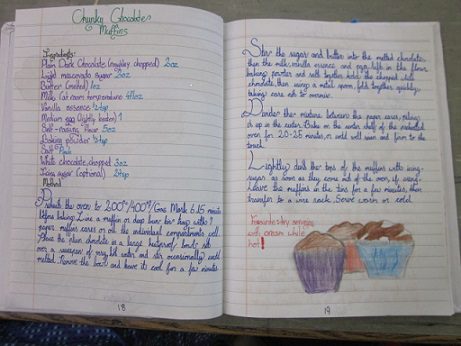 Chunky Chocolate
Muffins
Ingredients:
Plain Dark Chocolate (roughly chopped) 2oz
Light muscovado sugar 2oz
Butter (melted) 1oz
Milk (at room temperature)
Vanilla essence ½tsp
Medium egg (lightly beaten) 1
Self-raising flour 5oz
Baking powder ½tsp
Salt Pinch
White chocolate, chopped 3oz
Icing sugar (optional) 2tsp
Method
Preheat the oven to 200°/400°/Gas Mark 6 15 minutes
before baking. Line a muffin or deep bun tin tray with 7
paper muffin cases or oil the individual compartments well.
Place the plain chocolate in a large heatproof bowl set
over a saucepan of very hot water and stir occasionally until
melted. Remove the bowl and leave it cool for a few minutes
18
Stir the sugar and butter into the melted chocolate,
then the milk, vanilla essence and egg. Sift in the flour,
baking powder and salt together. Add the chopped white
chocolate, then using a metal spoon, fold together quickly,
taking care not to overmix.
Divide the mixture between the paper cases, piling
it up in the centre. Bake on the centre shelf of the preheated
oven for 20-25 minutes, or until well risen and firm to the
touch.
Lightly dust the tops of the muffins with icing
sugar as soon as they come out of the oven, if using.
Leave the muffins in the tins for a few minutes, then
transfer to a wire rack. Serve warm or cold.
Favourite: try serving
with cream while
hot!
19